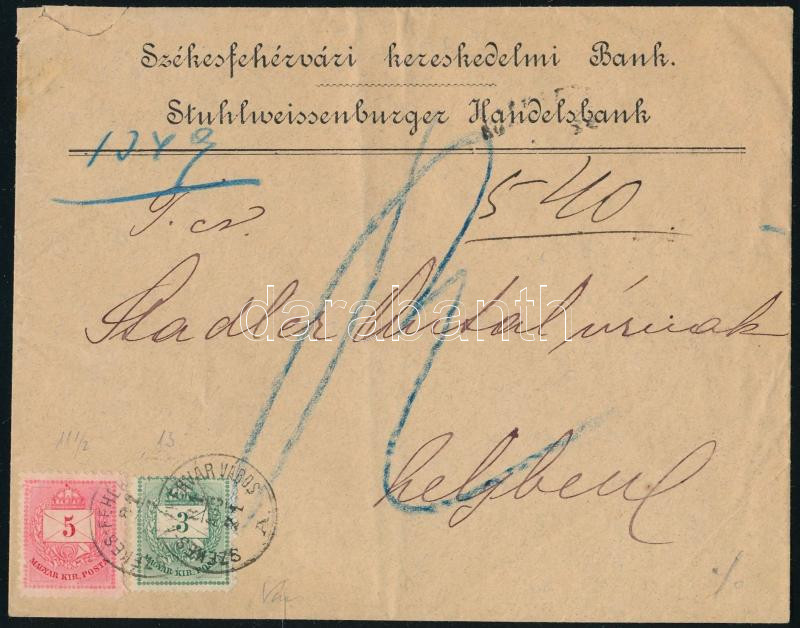 Székesfehérvári kereskedelmi Bank.
Stuhlweissenburger Handelsbank
1349
540
T. cz.
Stadler Antal úrnak
helyben
11 1/2
13
5
MAGYAR KIR. POSTA
3
MAGYAR KIR. POSTA
SZÉKES-FEHÉRVÁR VÁROS
darabanth